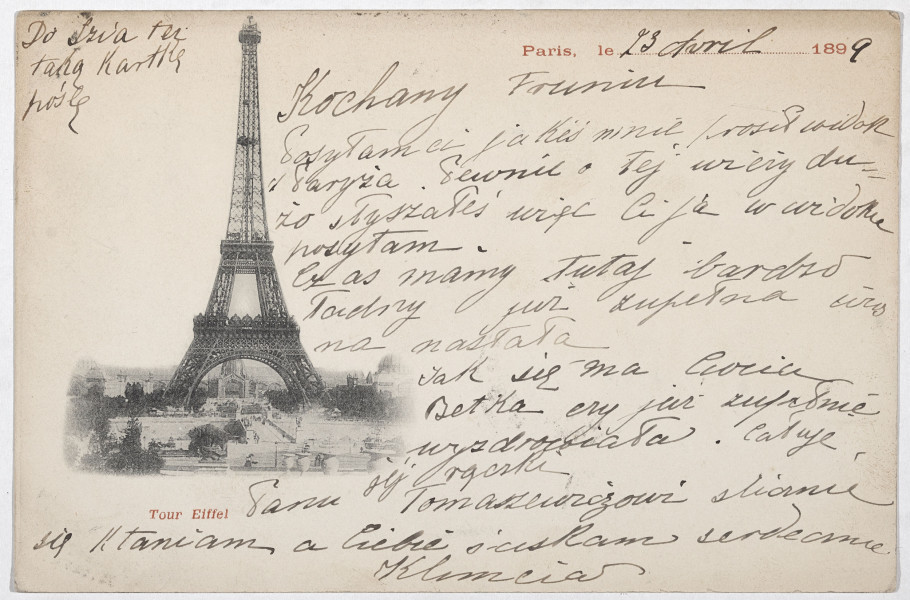 Do Dzia też
taką kartkę
poślę
Paris, le 23 April 1899
Kochany Fruniu
Posyłam ci jakieś mnie prosił widok
Paryża. Pewnie o tej wieży du=
żo słyszałeś więc Ci ja w widoku
posyłam.
Czas mamy tutaj bardzo
ładny już zupełna wios
na nastała
Jak się ma Ciocia
Betka czy już zupełnie
wyzdrowiała. Całuję
jej rączki
Tour Eiffel
Panu Tomaszewiczowi ślicznie
się kłaniam a Ciebie ściskam serdecznie
Klimcia